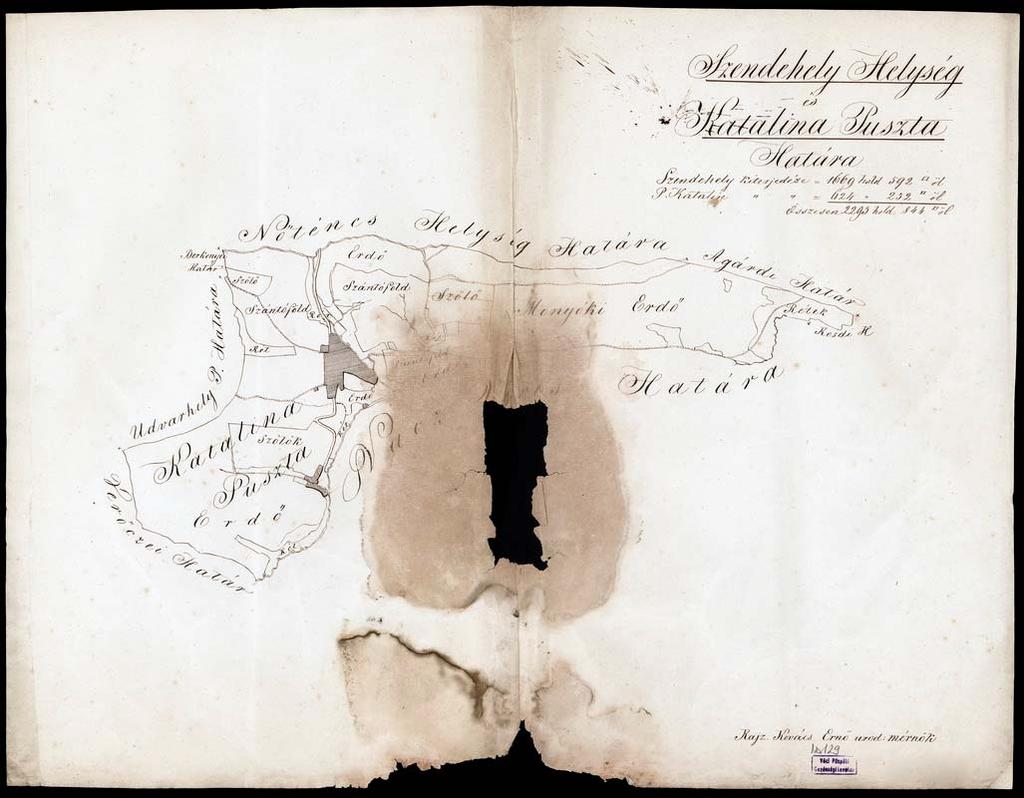 Szendehely Helység
és
Katalina Puszta
Határa
Szendehely kiterjedése = 1669 hold 592 □ öl
P. Katalin " " = 624 " 252 " öl
Összesen 2293 hold 844 □ öl
Nőténcs Helység Határa
Agárdi Határ
Berkenyei
Határ
Erdő
Szőlő
Szántóföld
Szántóföld
Rét
Szőlő
Menyóki Erdő
Rétek
Kosdi H
Rét
Udvarhely P. Határa
Erdő
Határa
Katalina
Puszta
Szőlők
Rét
Erdő
Rét
Verőczei Határ
Rajz. Kovács Ernő urod: mérnök
129
Váci Püspöki